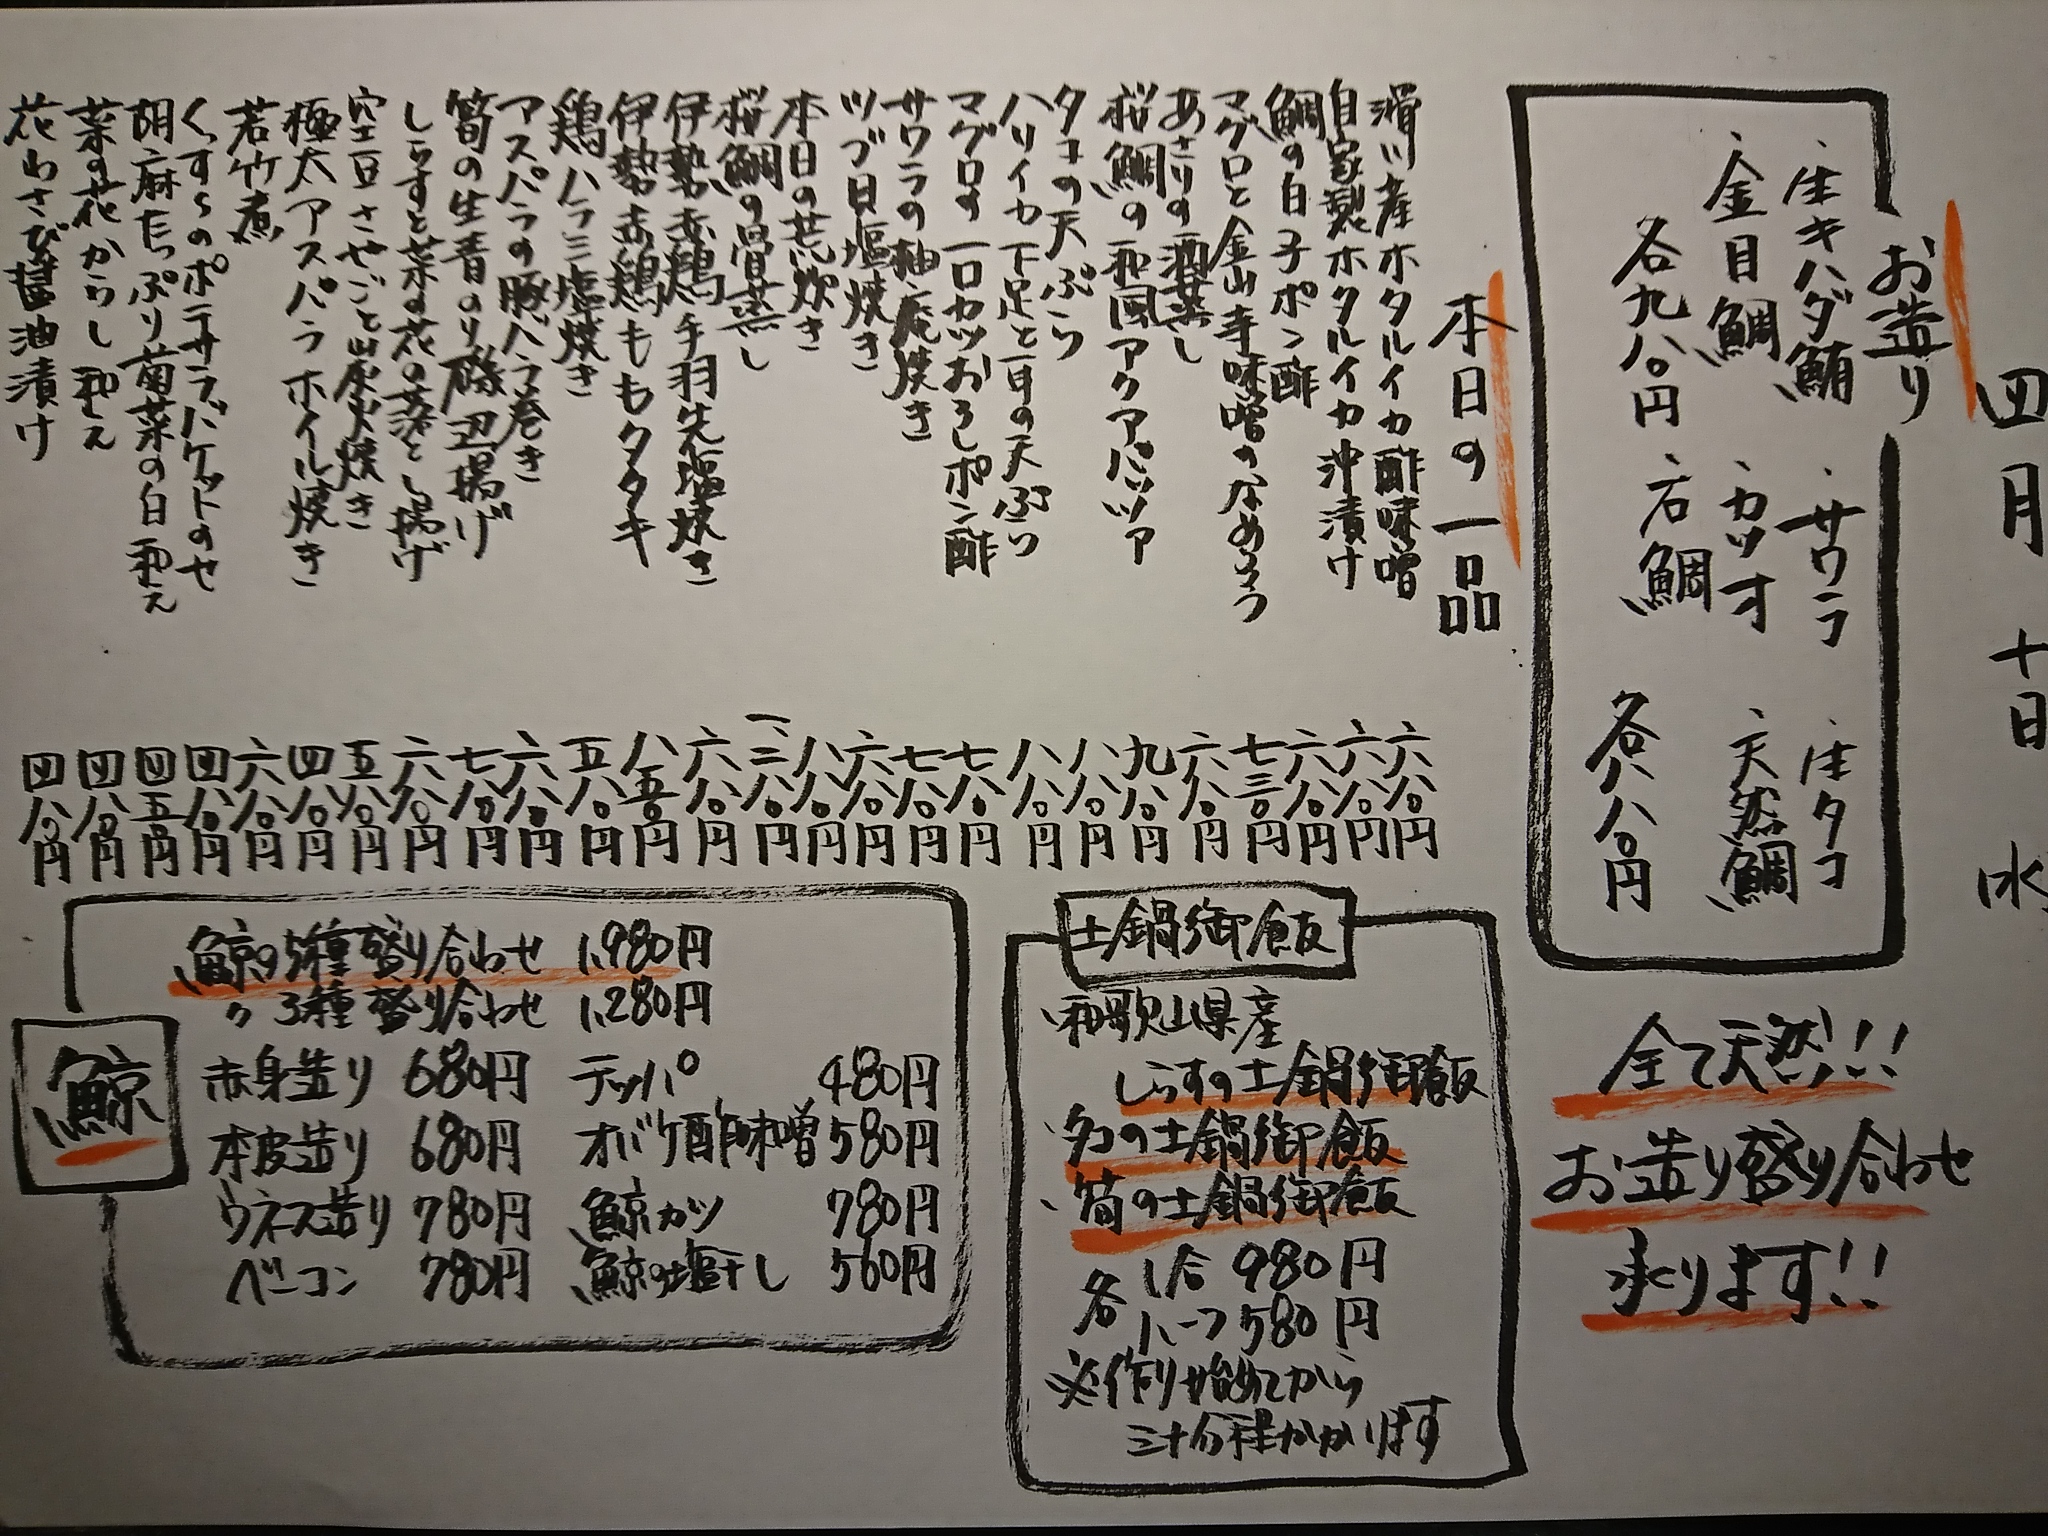 四月十日水
お造り
・生キハダ鮪 ・サワラ ・生タコ
・金目鯛 ・カツオ ・天然鯛
各九八〇円 ・石鯛 各八八〇円
全て天然!!
お造り盛り合わせ
承ります!!
本日の一品
滑川産ホタルイカ酢味噌 六八〇円
自家製ホタルイカ沖漬け 六八〇円
鯛の白子ポン酢 六八〇円
マグロと金山寺味噌のなめろう 七三〇円
あさりの酒蒸し 六八〇円
桜鯛の和風アクアパッツァ 九八〇円
タコの天ぷら 八八〇円
ハリイカ下足と耳の天ぷら 八八〇円
マグロの一口カツおろしポン酢 七八〇円
サワラの柚庵焼き 七八〇円
ツブ貝塩焼き 六八〇円
本日の荒炊き 八八〇円
桜鯛の骨蒸し 一、二八〇円
伊勢赤鶏手羽先塩焼き 六八〇円
伊勢赤鶏ももタタキ 八五〇円
鶏ハラミ塩焼き 五八〇円
アスパラの豚バラ巻き 六八〇円
筍の生青のり磯辺揚げ 七八〇円
しらすと菜の花の落とし揚げ 六八〇円
空豆さやごと炭火焼き 五八〇円
極太アスパラホイル焼き 四八〇円
若竹煮 六八〇円
ポテサラバケットのせ 四八〇円
胡麻たっぷり菊菜の白和え 四五〇円
菜の花からし和え 四八〇円
花わさび醤油漬け 四八〇円
土鍋御飯
・和歌山県産
しらすの土鍋御飯
・タコの土鍋御飯
・筍の土鍋御飯
各 1合 980円
ハーフ 580円
※作り始めてから
三十分程かかります
鯨
鯨の5種盛り合わせ 1,980円
〃 3種盛り合わせ 1,280円
赤身造り 680円 テッパ 480円
本皮造り 680円 オバケ酢味噌 580円
ウネス造り 780円 鯨カツ 780円
ベーコン 780円 鯨の塩干し 560円